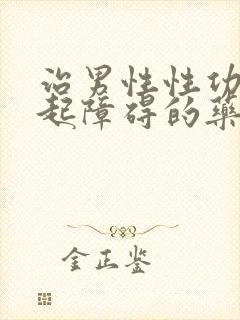 治男性性功
起障碍的药
金正鉴